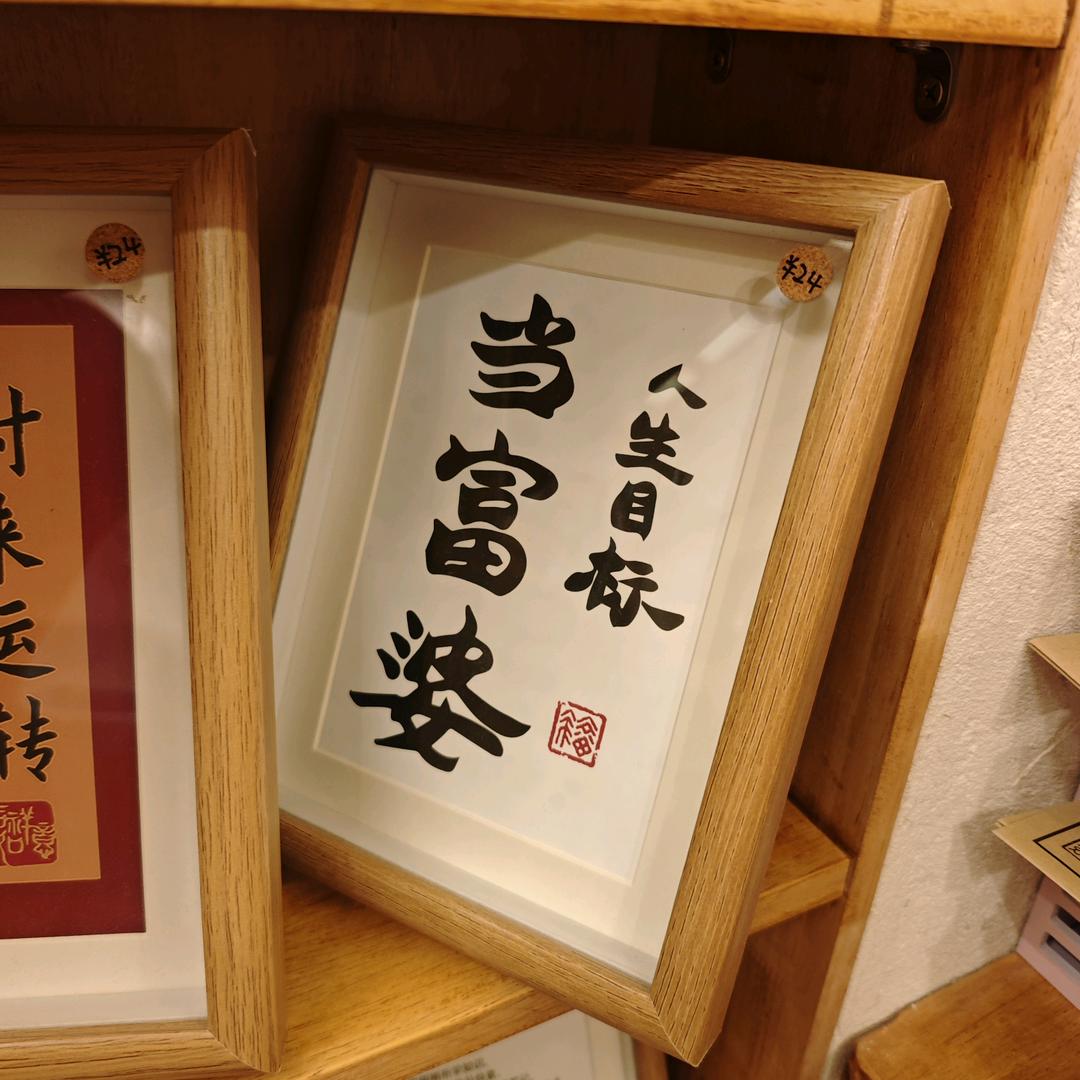 人生目标
当富婆
福
¥24
时来运转
¥24